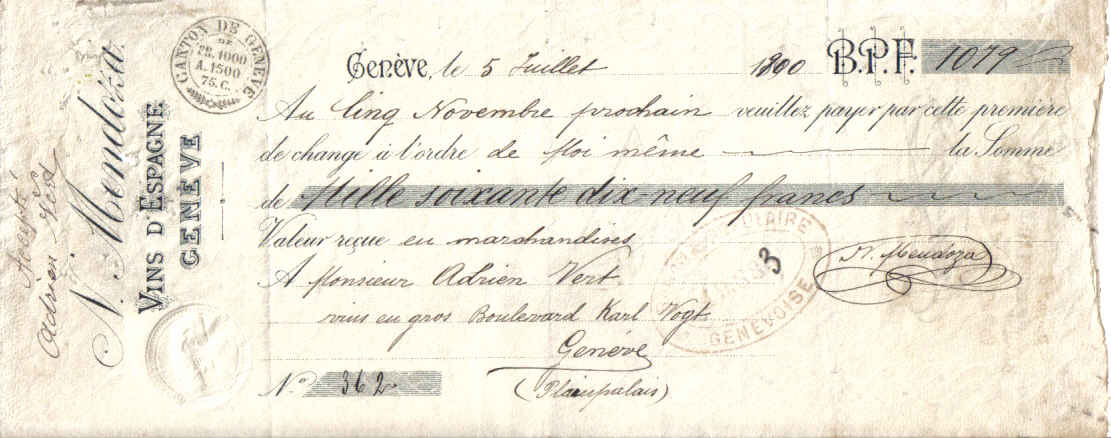 Accepté
Adrien Vert
N. Mendoza.
VINS D'ESPAGNE
GENÈVE
CANTON DE GENÈVE
DE
FR. 1000
A. 1500
75. C.
Genève, le 5 Juillet 1890 B.P.F. 1079
Au Cinq Novembre prochain veuillez payer par cette première
de change à l'ordre de Moi même la Somme
de Mille soixante dix neuf francs
Valeur reçue en marchandises
A Monsieur Adrien Vert
vins en gros Boulevard Karl Vogt
Genève
(Plainpalais)
N° 362
POPULAIRE
3
GENEVOISE
N. Mendoza